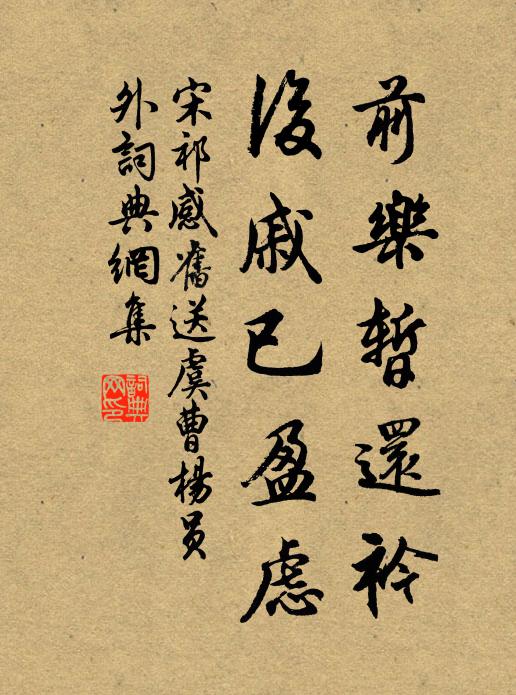 前樂暫還衿
後戚已盈慮
宋祁感舊送虞曹楊員
外詞典網集
詞典網印